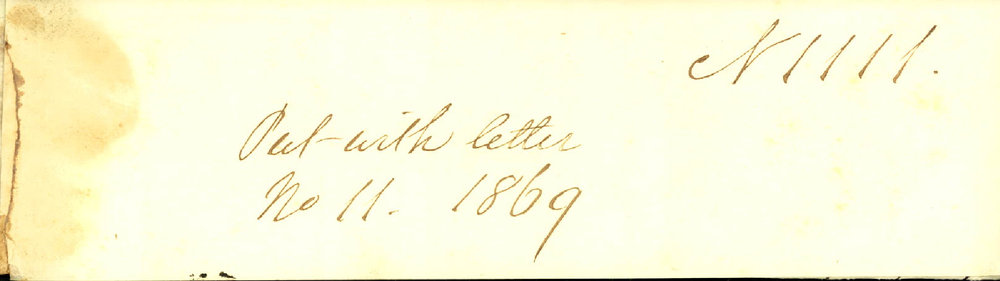 N 1111.
Put with letter
No 11. 1869